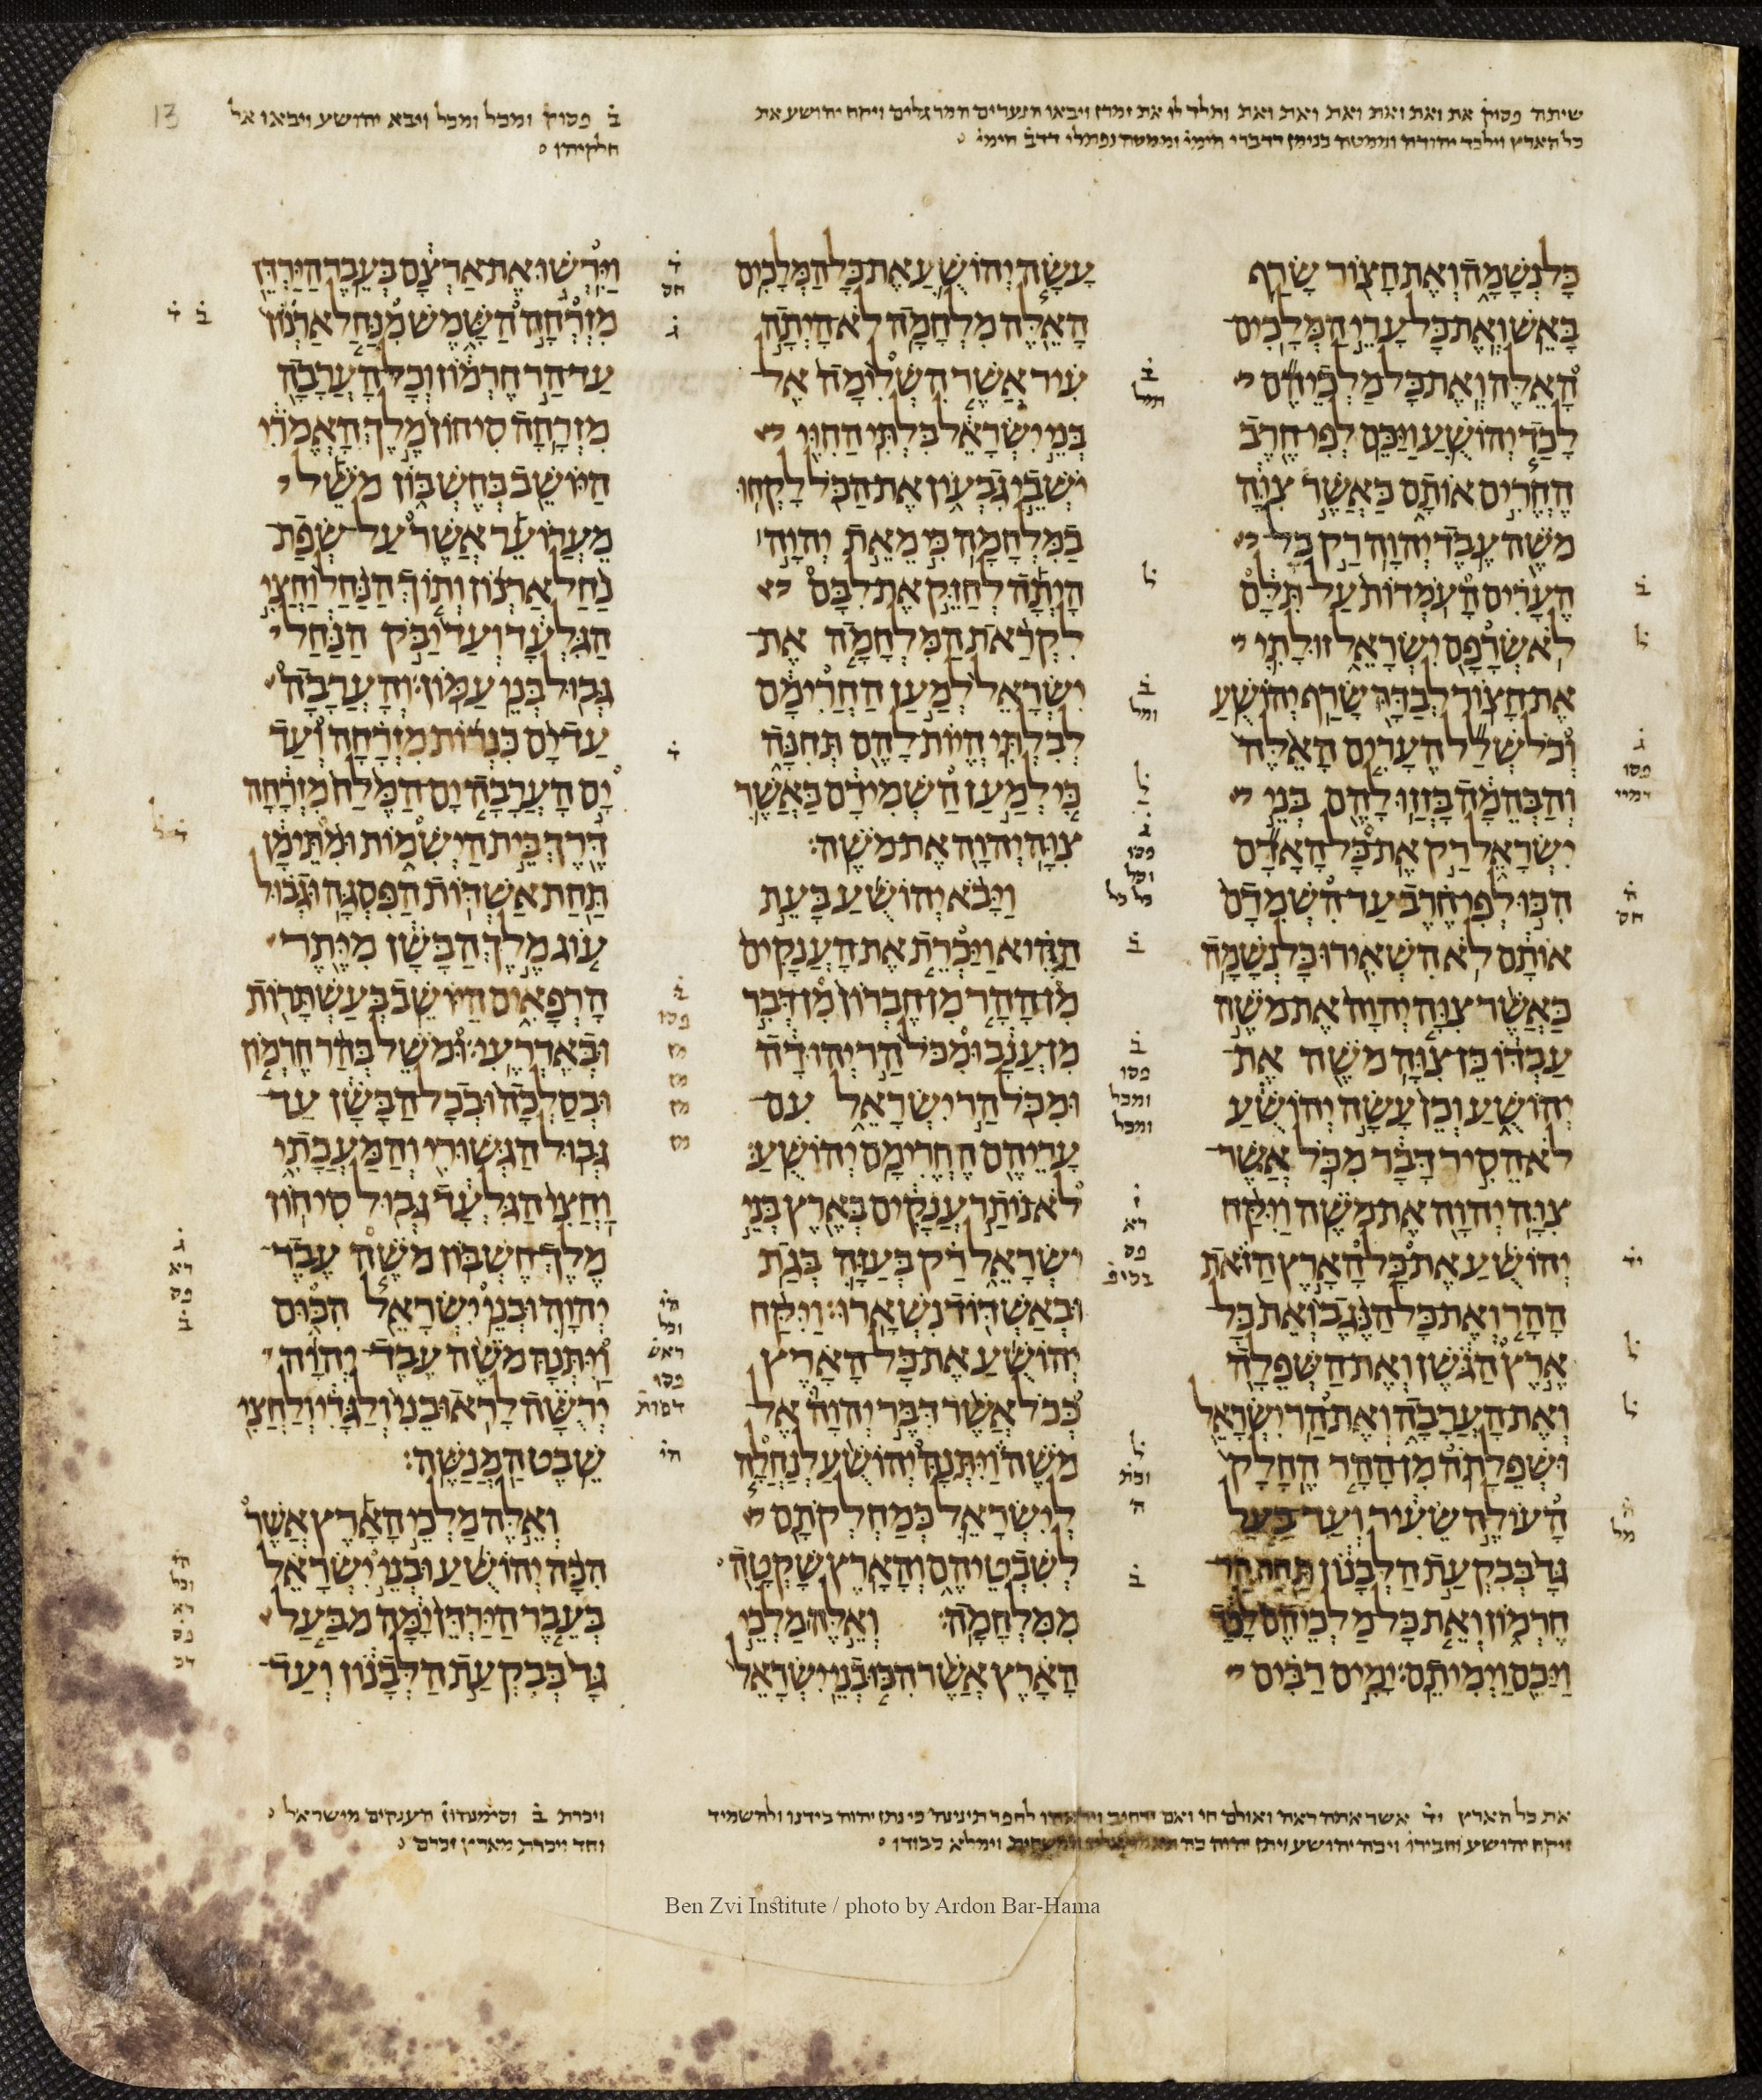 שיתה פסוק את ואת ואת ואת ואת ואת ותלד לו את זמרן ויבאו הנערים המרגלים ויקח יהושע את
כל הארץ וילכד יהודה וממטה בנימן דדברי הימי וממטה נפתלי דדב הימי
ב פסוק ומכל ומכל ויבא יהושע ויבאו אל
חלקיהו
13
כל נשמה ואת חצור שרף
באש ואת כל ערי המלכים
האלה ואת כל מלכיהם
לכד יהושע ויכם לפי חרב
החרים אותם כאשר צוה
משה עבד יהוה רק כל
הערים העמדות על תלם
לא שרפם ישראל זולתי
את חצור לבדה שרף יהושע
וכל שלל הערים האלה
והבהמה בזזו להם בני
ישראל רק את כל האדם
הכו לפי חרב עד השמדם
אותם לא השאירו כל נשמה
כאשר צוה יהוה את משה
עבדו כן צוה משה את
יהושע וכן עשה יהושע
לא הסיר דבר מכל אשר
צוה יהוה את משה ויקח
יהושע את כל הארץ הזאת
ההר ואת כל הנגב ואת כל
ארץ הגשן ואת השפלה
ואת הערבה ואת הר ישראל
ושפלתה מן ההר החלק
העולה שעיר ועד בעל
גד בבקעת הלבנון תחת הר
חרמון ואת כל מלכיהם לכד
ויכם וימיתם׃ ימים רבים
ב
ל
ג
פסו
דמיי
ה
חס
יד
ל
ל
ה
מל
עשה יהושע את כל המלכים
האלה מלחמה לא היתה
עיר אשר השלימה אל
בני ישראל בלתי החוי
ישבי גבעון את הכל לקחו
במלחמה כי מאת יהוה
היתה לחזק את לבם
לקראת המלחמה את
ישראל למען החרימם
לבלתי היות להם תחנה
כי למען השמידם כאשר
צוה יהוה את משה׃
ויבא יהושע בעת
ההיא ויכרת את הענקים
מן ההר מן חברון מן דבר
מן ענב ומכל הר יהודה
ומכל הר ישראל עם
עריהם החרימם יהושע׃
לא נותר ענקים בארץ בני
ישראל רק בעזה בגת
ובאשדוד נשארו׃ ויקח
יהושע את כל הארץ
ככל אשר דבר יהוה אל
משה ויתנה יהושע לנחלה
לישראל כמחלקתם
לשבטיהם והארץ שקטה
ממלחמה׃ ואלה מלכי
הארץ אשר הכו בני ישראל
ב
ל
ב
ומל
ל
ג
פסו
וכל
כל כל
ב
ב
פסו
ומכל
ומכל
ז
רא
פס
ל
וכת
ה
ב
וירשו את ארצם בעבר הירדן
מזרחה השמש מנחל ארנון
עד הר חרמון וכל הערבה
מזרחה סיחון מלך האמרי
היושב בחשבון משל
מערוער אשר על שפת
נחל ארנון ותוך הנחל וחצי
הגלעד ועד יבק הנחל
גבול בני עמון׃ והערבה
עד ים כנרות מזרחה ועד
ים הערבה ים המלח מזרחה
דרך בית הישמות ומתימן
תחת אשדות הפסגה וגבול
עוג מלך הבשן מיתר
הרפאים היושב בעשתרות
ובאדרעי׃ ומשל בהר חרמון
ובסלכה ובכל הבשן עד
גבול הגשורי והמעכתי
וחצי הגלעד גבול סיחון
מלך חשבון משה עבד
יהוה ובני ישראל הכום
ויתנה משה עבד יהוה
ירשה לראובני ולגדי ולחצי
שבט המנשה׃
ואלה מלכי הארץ אשר
הכה יהושע ובני ישראל
בעבר הירדן ימה מבעל
גד בבקעת הלבנון ועד
ד
חס
ג
ד
פסו
מן
מן
מן
מן
וכל
ראש
פסו
דסות
ב ד
ג
רא
פס
ב
וכל
רא
פס
את כל הארץ יד אשר אתה ראה ואולם חי ואם ירחיב לחפר תינינה כי נתן יהוה בידנו ולהשמיד
ויקח יהושע וחבירו ויכה יהושע ויתן יהוה וימלא כבודו
ויכרת ב וסימנהון הענקים מישראל
וחד ויכרת מארץ זכרם
Ben Zvi Institute / photo by Ardon Bar-Hama